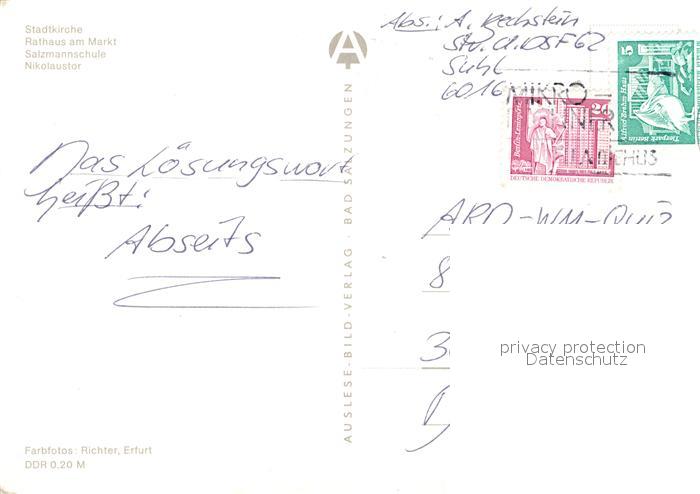 Stadtkirche
Rathaus am Markt
Salzmannschule
Nikolaustor
Abs.: A. Rechstein
Str. d. DSF 62
Suhl
6016
MIKRO
5
Alfred Brehm Haus
Tierpark Berlin
Berlin-Leninplatz
DEUTSCHE DEMOKRATISCHE REPUBLIK
Das Lösungswort
heißt:
Abseits
AUSLESE-BILD-VERLAG · BAD SALZUNGEN
ARD-WM-QUIZ
8
3
privacy protection
Datenschutz
Farbfotos: Richter, Erfurt
DDR 0,20 M